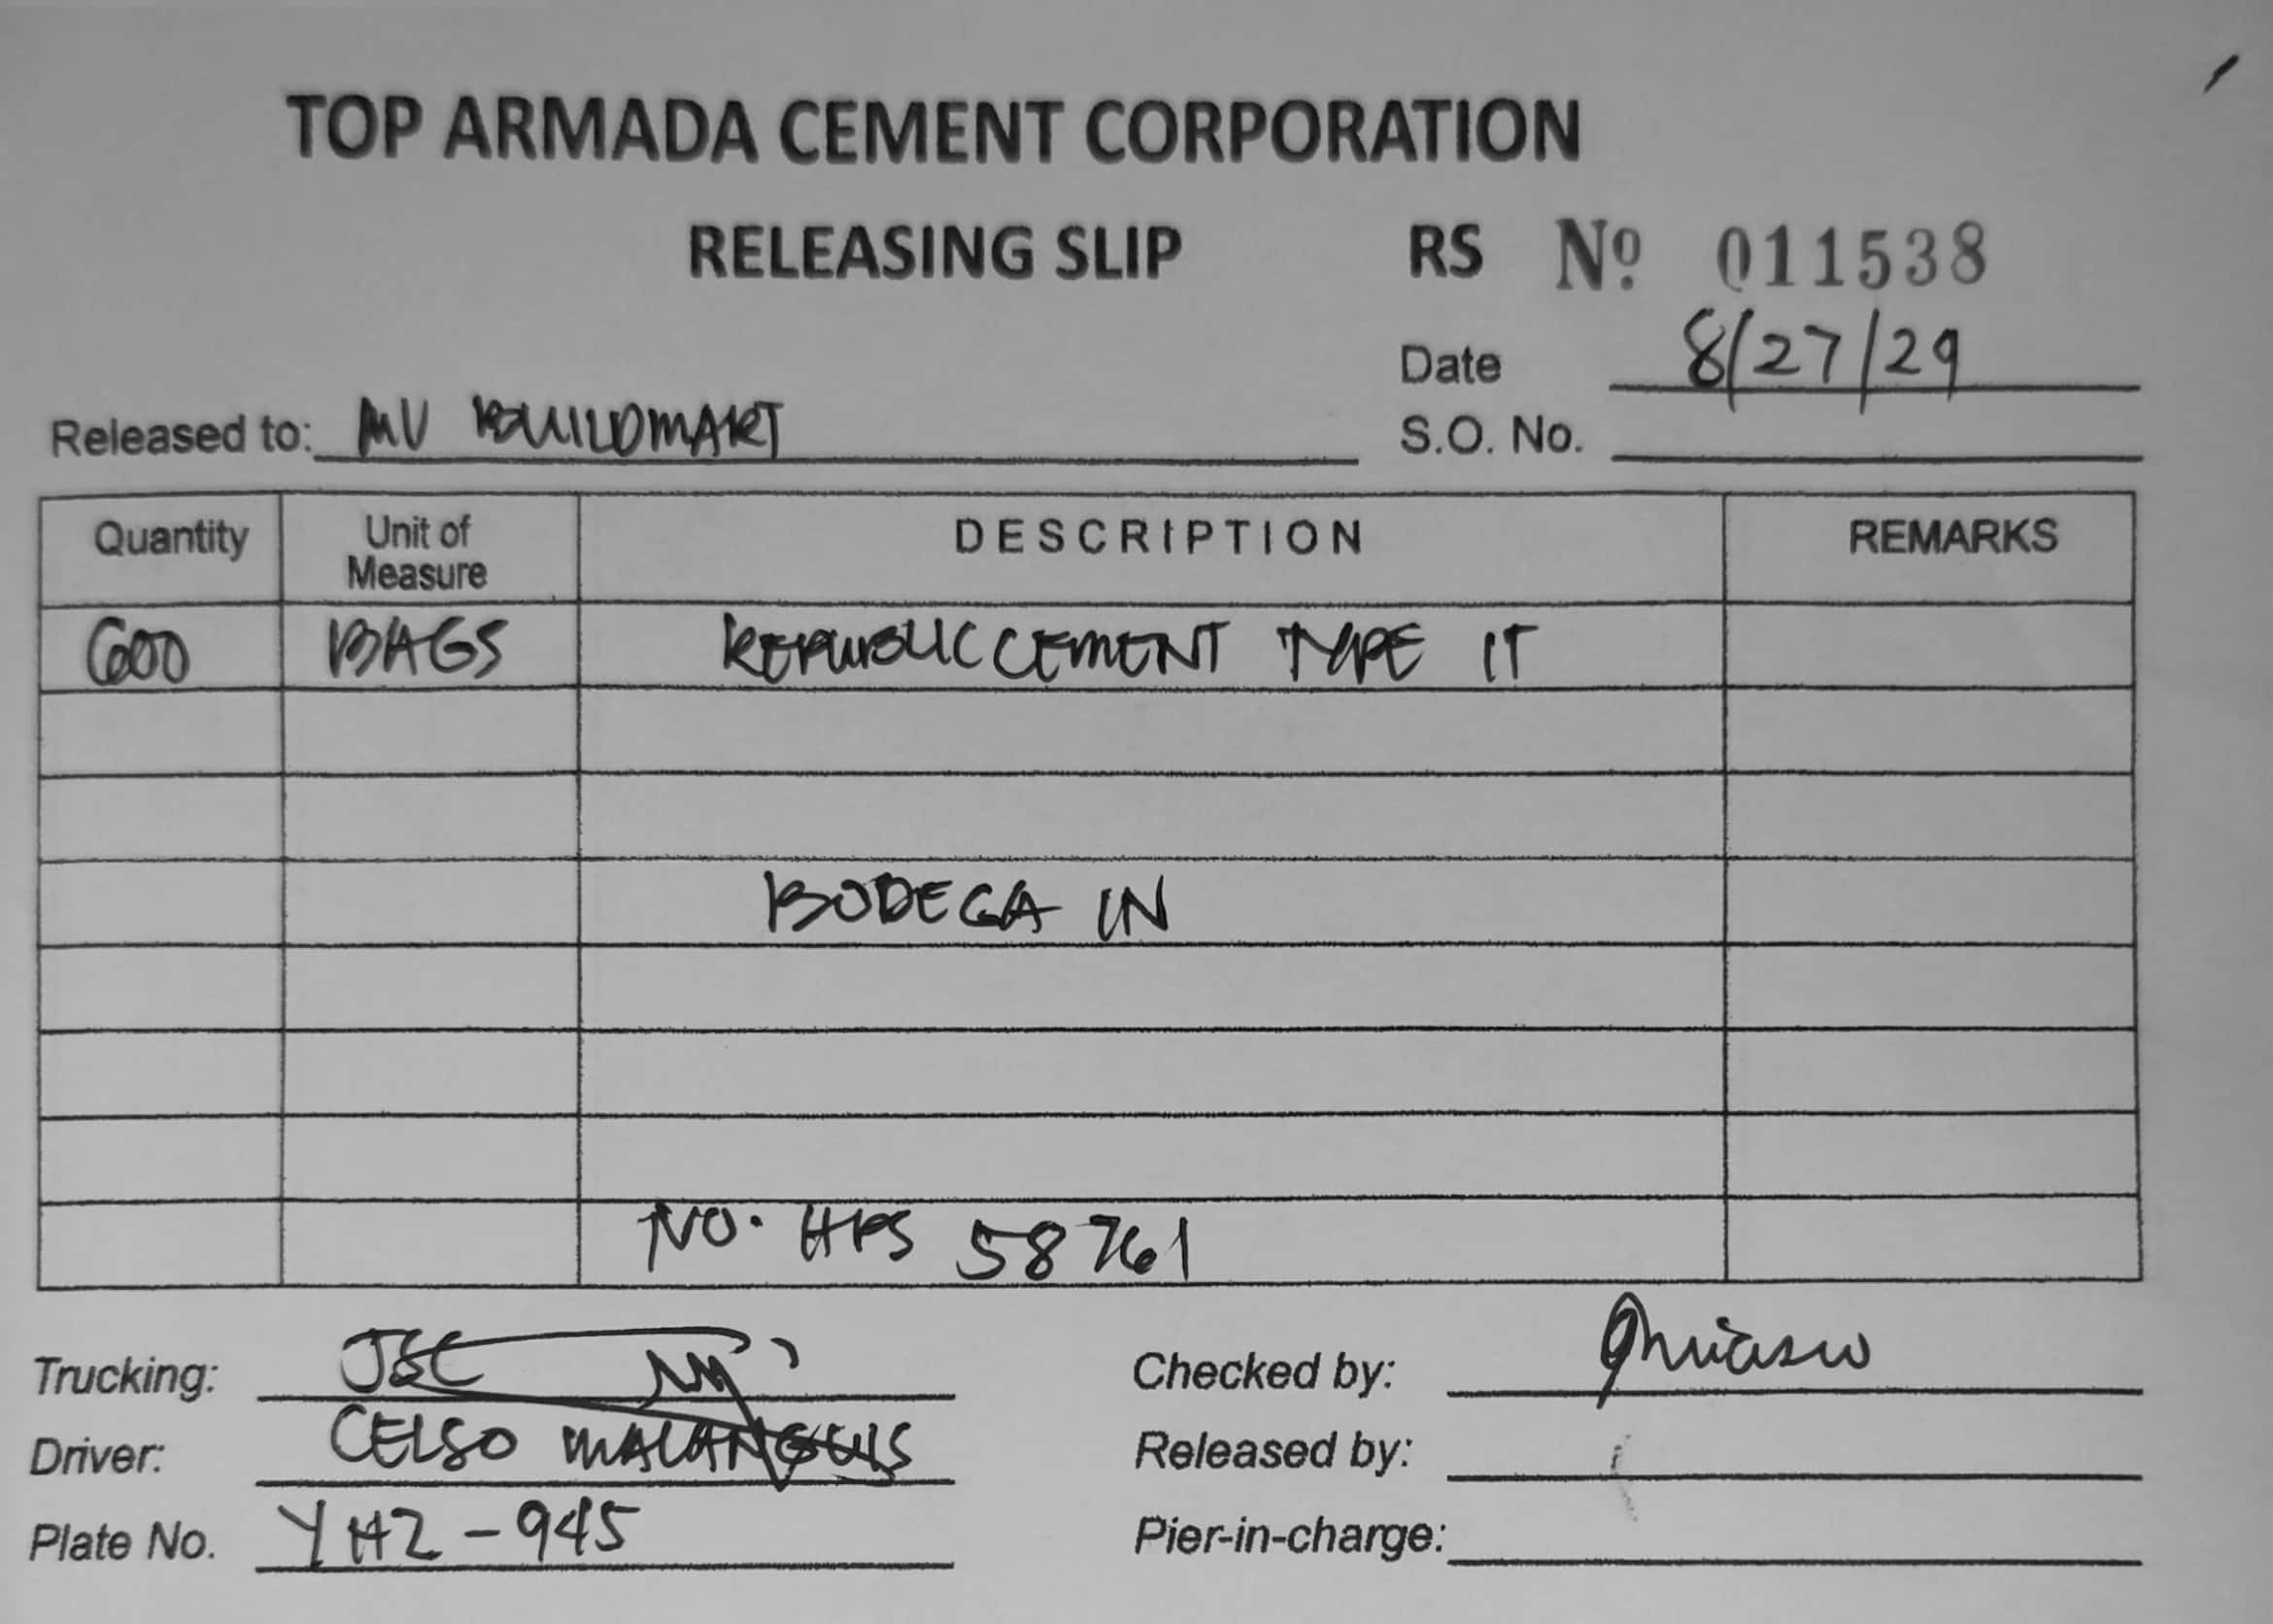 TOP ARMADA CEMENT CORPORATION
RELEASING SLIP RS Nº 011538
Date 8/27/29
Released to: MV BUILDMART S.O. No.
Quantity Unit of Measure DESCRIPTION REMARKS
600 BAGS REPUBLIC CEMENT TYPE IT
BODEGA IN
NO. HPS 58761
Trucking: JSC Checked by:
Driver: CELSO MALANGGUIS Released by:
Plate No. YHZ-945 Pier-in-charge: